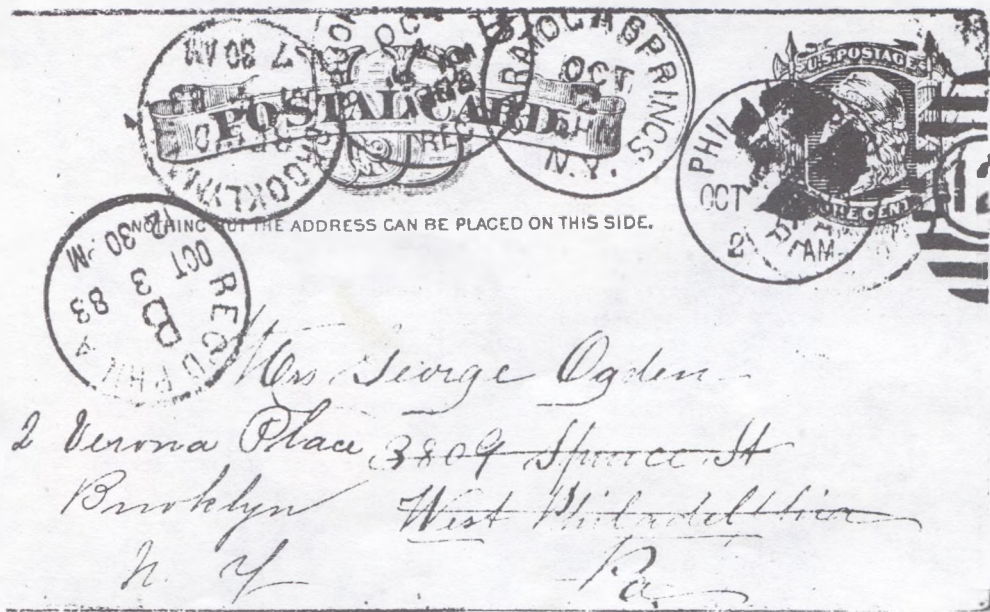 7 30 AM
BROOKLYN
OCT
REC
OCT
N.Y.
U.S. POSTAGE
ONE CENT
PHIL
OCT
2
AM
POSTAL CARD
NOTHING BUT THE ADDRESS CAN BE PLACED ON THIS SIDE.
REC'D PHILA
OCT 3
2 30 PM
83
Mrs George Ogden
2 Verona Place 3809 Spruce St
Brooklyn West Philadelphia
N. Y Pa